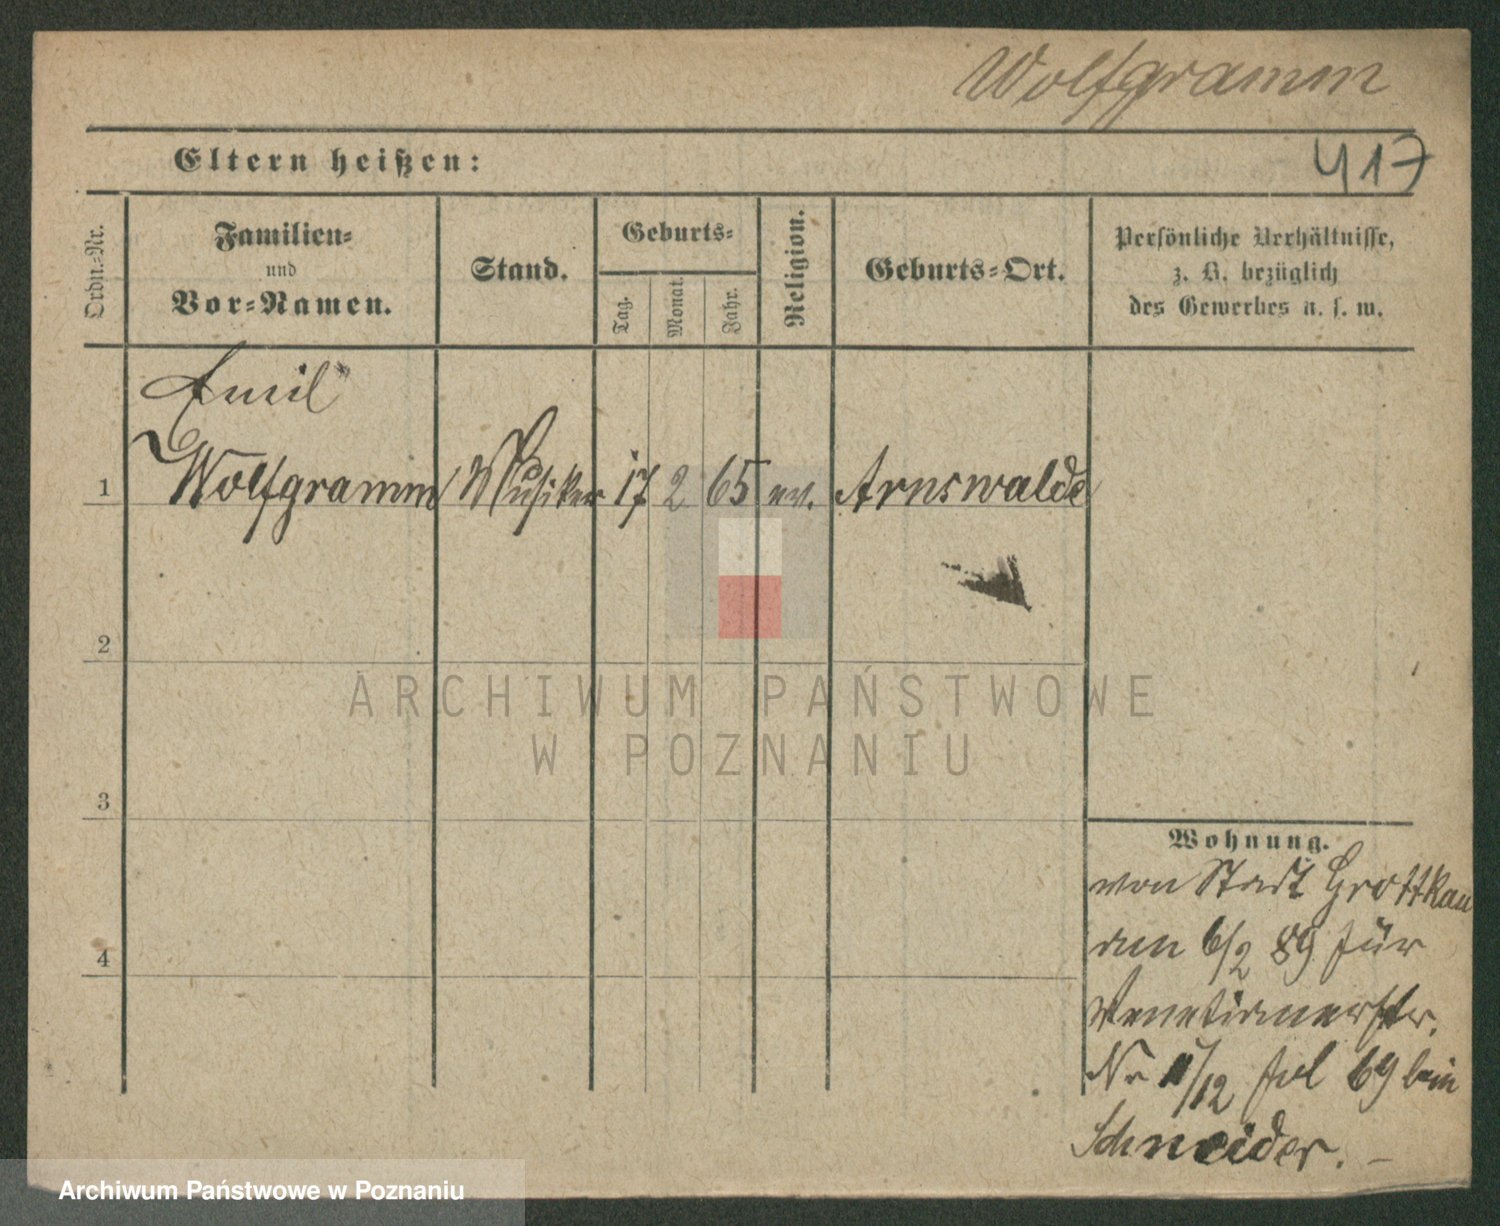 Wolfgramm
Eltern heißen:
417
Ordn.-Nr.
Familien-
und
Vor-Namen.
Stand.
Geburts-
Tag.
Monat.
Jahr.
Religion.
Geburts-Ort.
Persönliche Verhältnisse,
z. B. bezüglich
des Gewerbes u. s. w.
Emil
1 Wolfgramm Musiker 17 2 65 ev. Arnswalde
2
3
4
Wohnung.
von Stadt Grottkau
am 6/2 89 für
Venetianerstr.
Nr 11/12 Fol 69 bei
Schneider. –
ARCHIWUM PAŃSTWOWE
W POZNANIU
Archiwum Państwowe w Poznaniu